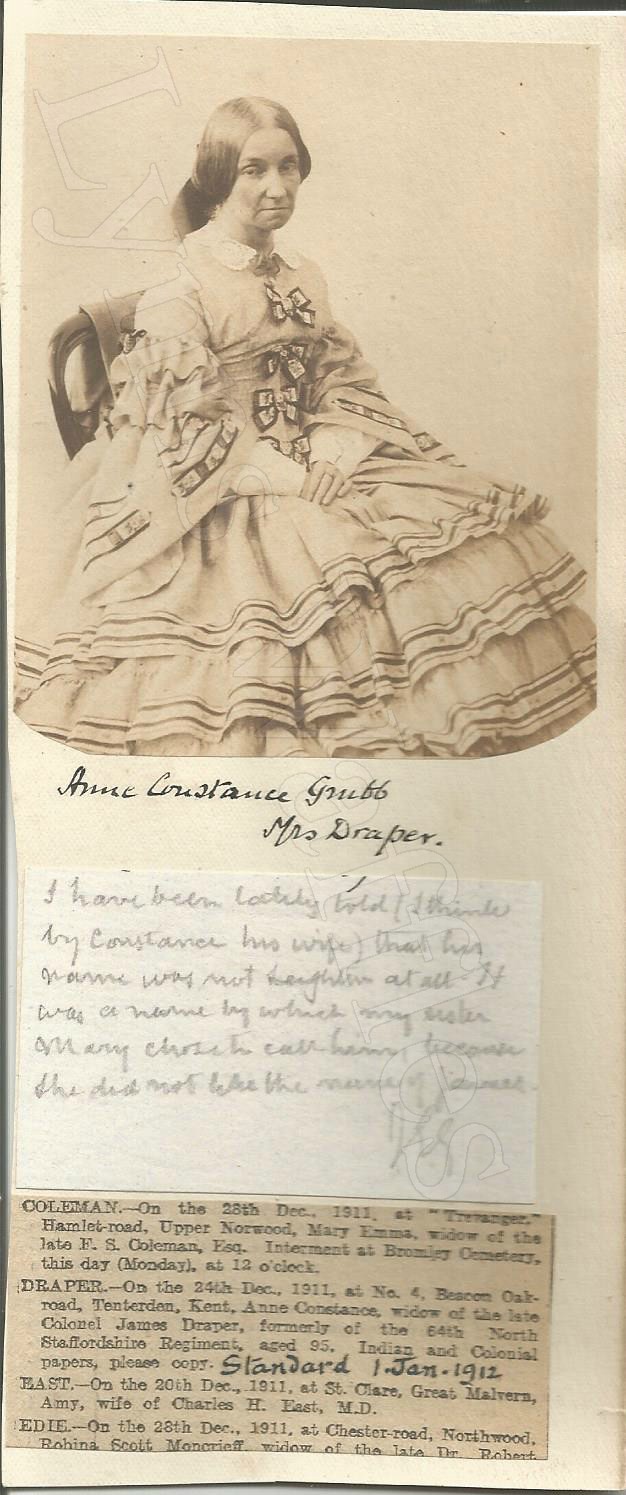 Anne Constance Grubb
Mrs Draper.
I have been lately told (I think
by Constance his wife) that his
name was not Leighton at all - It
was a name by which my sister
Mary chose to call him, because
she did not like the name of James.
COLEMAN.—On the 28th Dec., 1911, at "Trevanger,"
Hamlet-road, Upper Norwood, Mary Emma, widow of the
late F. S. Coleman, Esq. Interment at Bromley Cemetery,
this day (Monday), at 12 o'clock.
DRAPER.—On the 24th Dec., 1911, at No. 4, Beacon Oak-
road, Tenterden, Kent, Anne Constance, widow of the late
Colonel James Draper, formerly of the 64th North
Staffordshire Regiment, aged 95. Indian and Colonial
papers, please copy. Standard 1. Jan. 1912
EAST.—On the 20th Dec., 1911, at St. Clare, Great Malvern,
Amy, wife of Charles H. East, M.D.
EDIE.—On the 28th Dec., 1911, at Chester-road, Northwood,
Robina Scott Moncrieff, widow of the late Dr. Robert